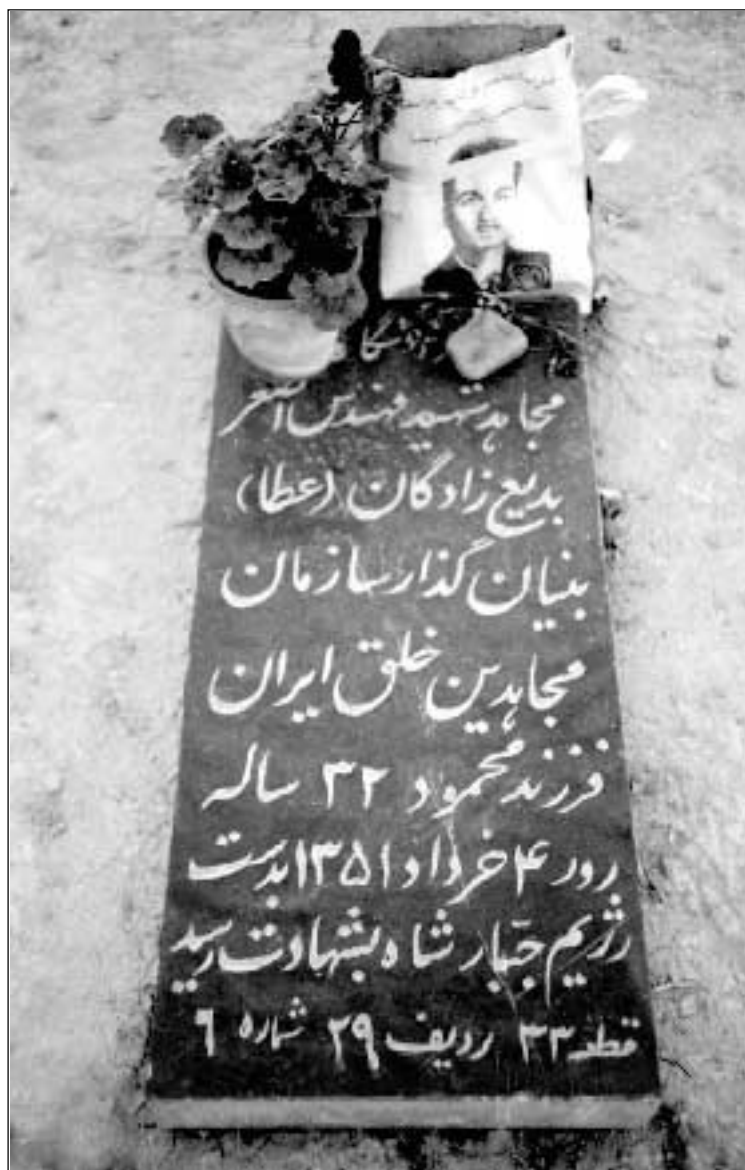 مجاهد شهید مهندس اصغر
بدیع زادگان (عطا)
بنیان گذار سازمان
مجاهدین خلق ایران
فرزند محمود ۳۲ ساله
روز ۴ خرداد ۱۳۵۱ بدست
رژیم جبّار شاه بشهادت رسید
قطعه ۳۳ ردیف ۲۹ شماره ۶